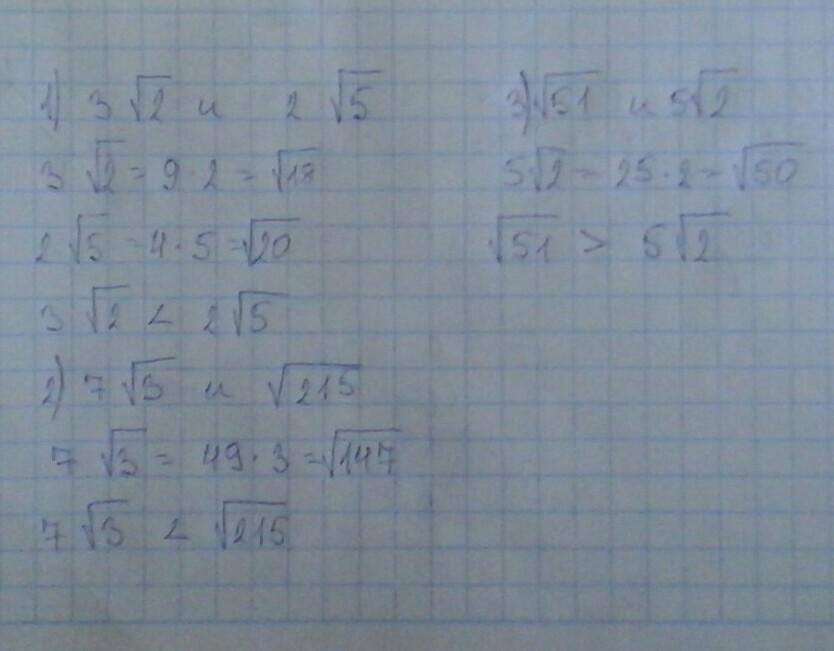 1) 3 √2 и 2 √5
3 √2 = 9 · 2 = √18
2 √5 = 4 · 5 = √20
3 √2 < 2 √5
2) 7 √3 и √215
7 √3 = 49 · 3 = √147
7 √3 < √215
3) √51 и 5√2
5√2 = 25 · 2 = √50
√51 > 5 √2